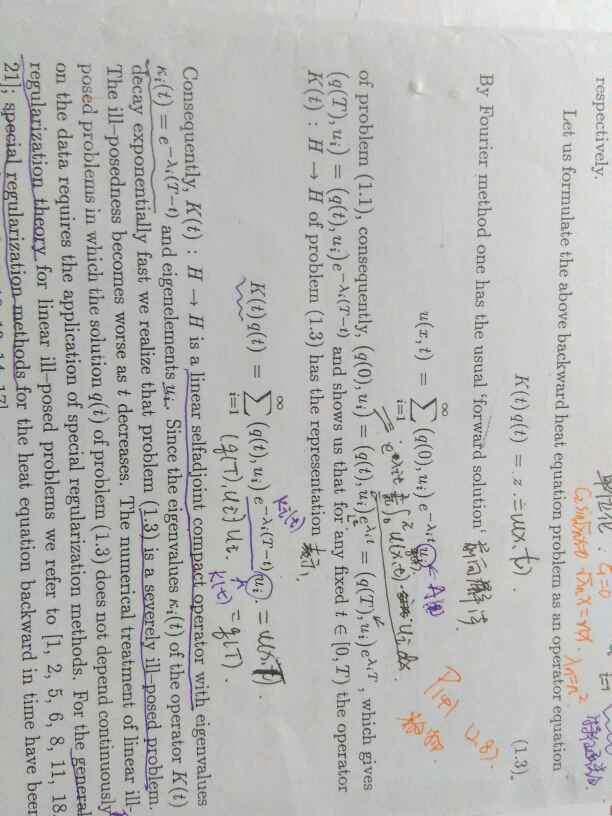 respectively.
Let us formulate the above backward heat equation problem as an operator equation
K(t)q(t) = z = u(x,t). (1.3)
By Fourier method one has the usual 'forward solution'
u(x,t) = ∑_{i=1}^{∞} (q(0), u_i) e^{-λ_i t} u_i
of problem (1.1), consequently, (q(0), u_i) = (q(t), u_i)e^{λ_i t} = (q(T), u_i)e^{λ_i T}, which gives
(q(T), u_i) = (q(t), u_i)e^{-λ_i(T-t)} and shows us that for any fixed t ∈ [0, T) the operator
K(t) : H → H of problem (1.3) has the representation 表示,
K(t)q(t) = ∑_{i=1}^{∞} (q(t), u_i) e^{-λ_i(T-t)} u_i = u(x,T).
K_i(t)
(q(T), u_i) u_i. = q(T).
K(t)
Consequently, K(t) : H → H is a linear selfadjoint compact operator with eigenvalues
κ_i(t) = e^{-λ_i(T-t)} and eigenelements u_i. Since the eigenvalues κ_i(t) of the operator K(t)
decay exponentially fast we realize that problem (1.3) is a severely ill-posed problem.
The ill-posedness becomes worse as t decreases. The numerical treatment of linear ill-
posed problems in which the solution q(t) of problem (1.3) does not depend continuously
on the data requires the application of special regularization methods. For the general
regularization theory for linear ill-posed problems we refer to [1, 2, 5, 6, 8, 11, 18,
21]; special regularization methods for the heat equation backward in time have been